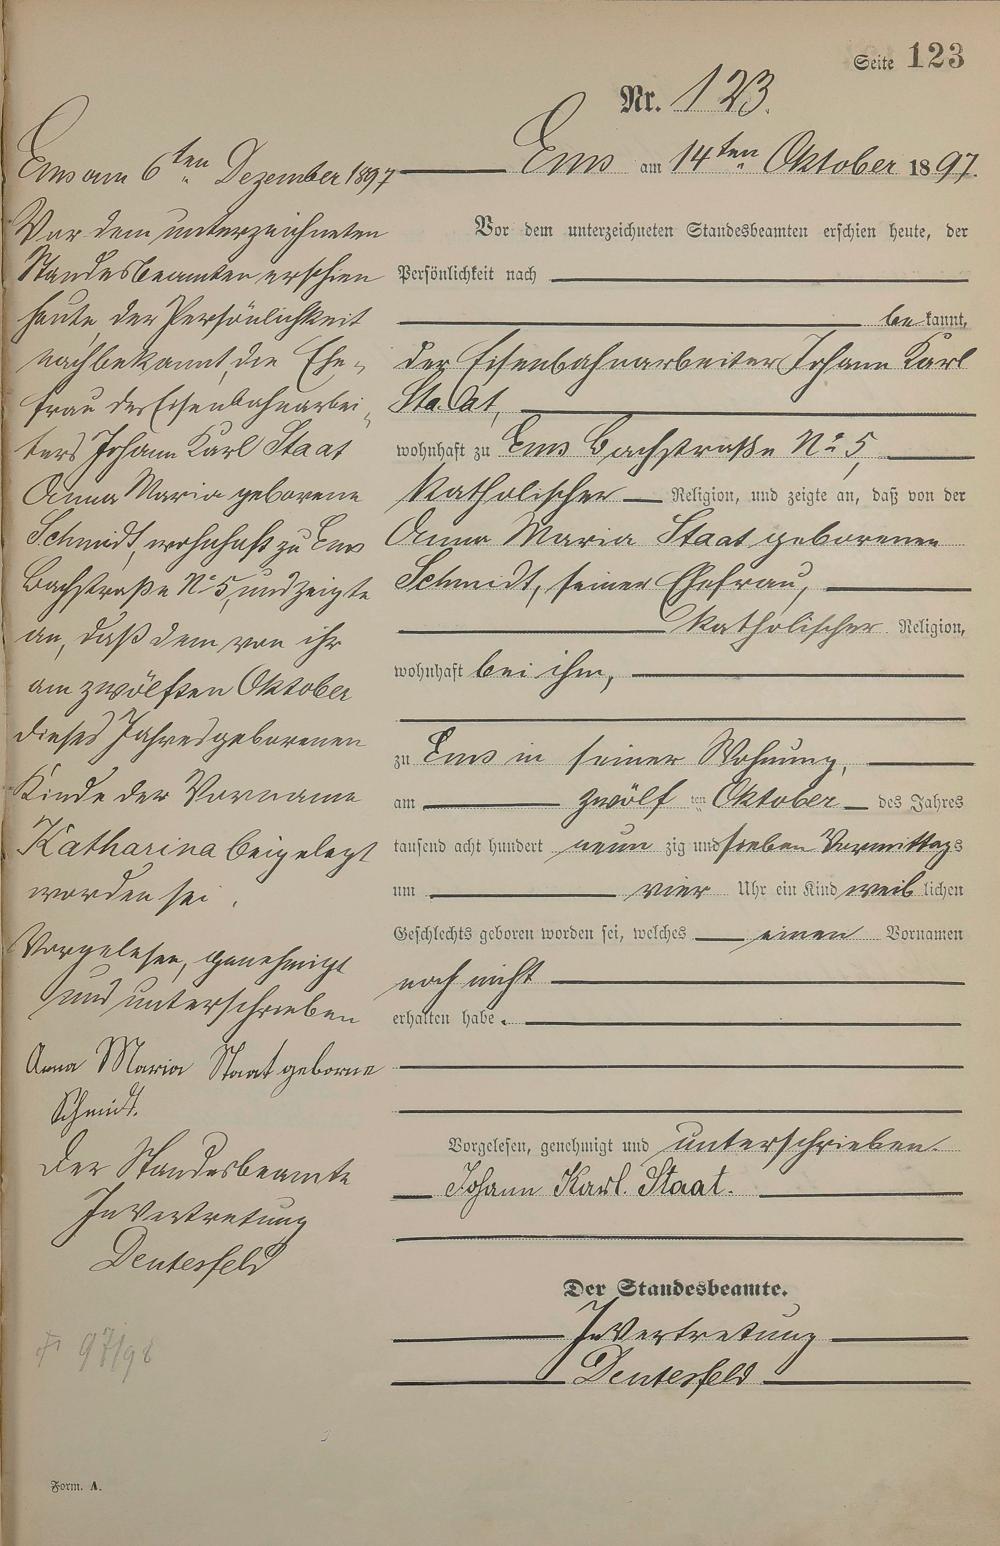 Seite 123
Nr. 123.
Ems am 14ten Oktober 1897.
Vor dem unterzeichneten Standesbeamten erschien heute, der
Persönlichkeit nach
be kannt,
der Eisenbahnarbeiter Johann Karl
Staat,
wohnhaft zu Ems Bachstraße No 5,
katholischer Religion, und zeigte an, daß von der
Anna Maria Staat geborenen
Schmidt, seiner Ehefrau,
katholischer Religion,
wohnhaft bei ihm,
zu Ems in seiner Wohnung,
am zwölf ten Oktober des Jahres
tausend acht hundert neun zig und sieben Vormittags
um vier Uhr ein Kind weib lichen
Geschlechts geboren worden sei, welches einen Vornamen
noch nicht
erhalten habe.
Vorgelesen, genehmigt und unterschrieben.
Johann Karl. Staat.
Der Standesbeamte.
In Vertretung
Deutesfeld
Ems am 6ten Dezember 1897
Vor dem unterzeichneten
Standesbeamten erschien
heute, der Persönlichkeit
nach bekannt, die Ehe-
frau des Eisenbahnarbei-
ters Johann Karl Staat
Anna Maria geborene
Schmidt, wohnhaft zu Ems
Bachstraße No 5, und zeigte
an, daß dem von ihr
am zwölften Oktober
dieses Jahres geborenen
Kinde der Vorname
Katharina beigelegt
worden sei.
Vorgelesen, genehmigt
und unterschrieben
Anna Maria Staat geborne
Schmidt.
Der Standesbeamte
In Vertretung
Deutesfeld
97/98
Form. A.